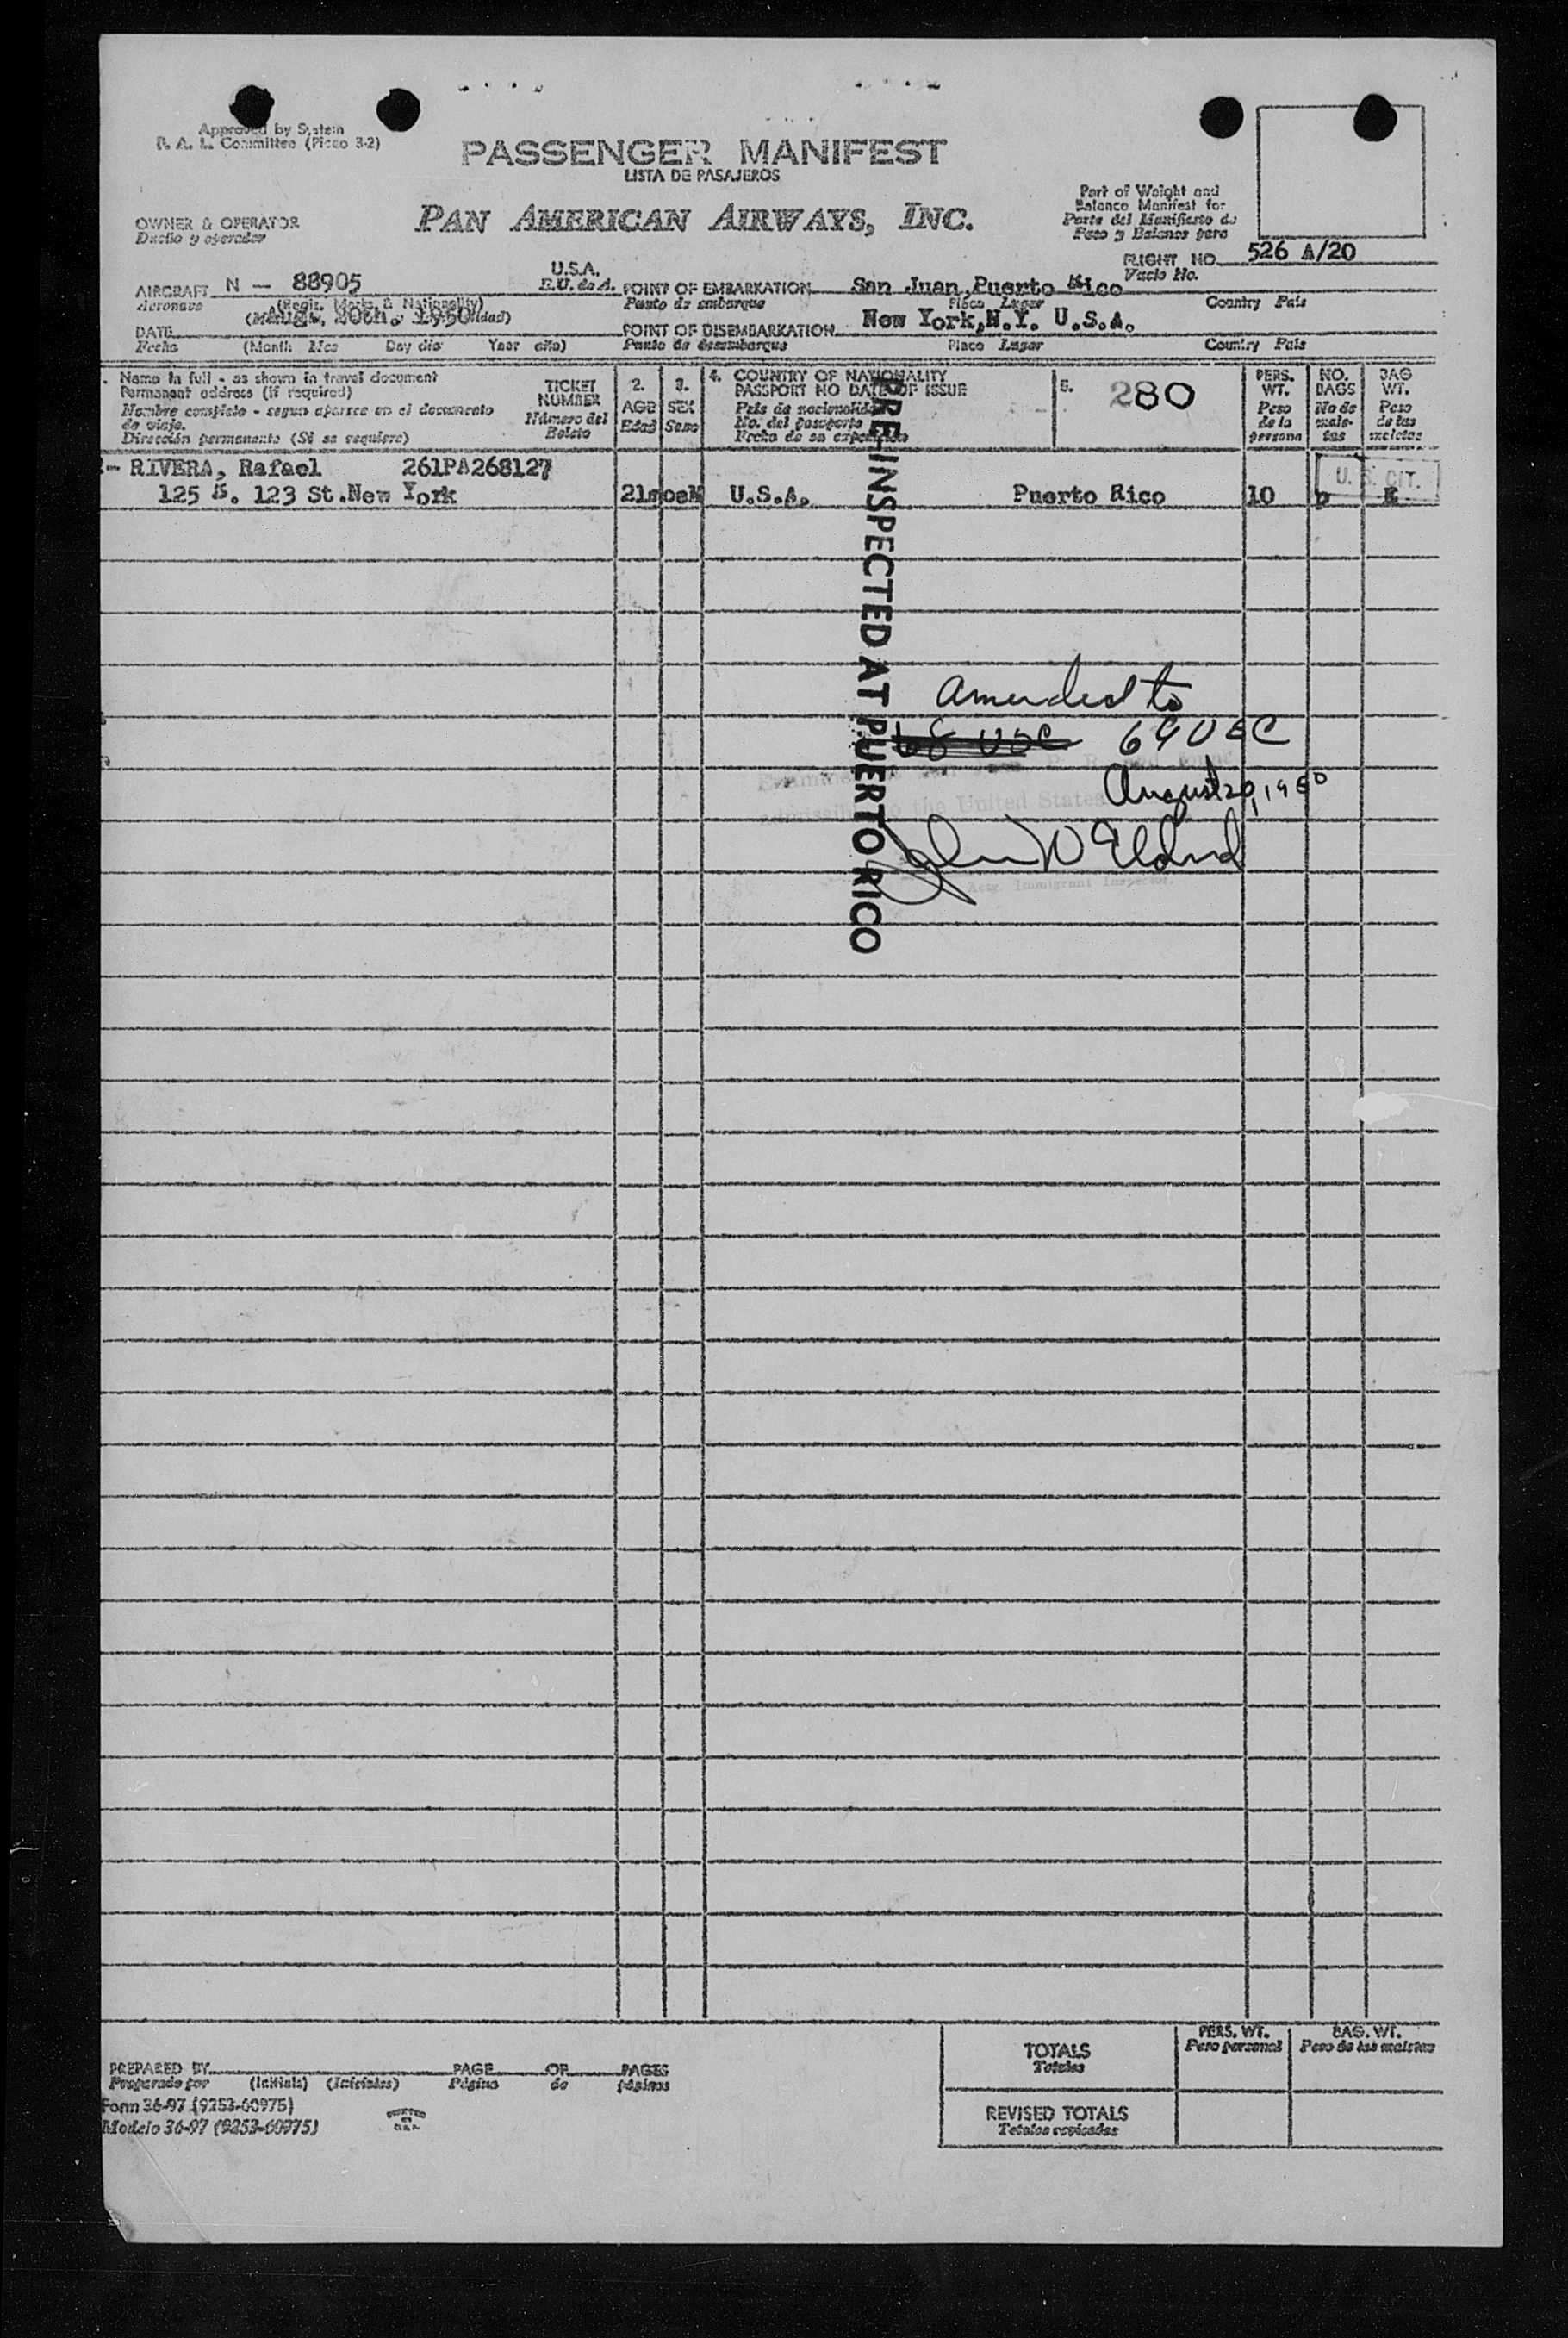 Approved by System
P. A. L. Committee (Picao 3-2)
PASSENGER MANIFEST
LISTA DE PASAJEROS
OWNER & OPERATOR
Dueño y operador
PAN AMERICAN AIRWAYS, INC.
Part of Weight and
Balance Manifest for
Parte del Manifiesto de
Peso y Balance para
FLIGHT NO. 526 A/20
Vuelo No.
AIRCRAFT N - 88905
Aeronave
(Regis. Marks & Nationality)
U.S.A.
E.U. de A.
POINT OF EMBARKATION San Juan, Puerto Rico
Punto de embarque
Place Lugar
Country País
DATE Aug. 20th. 1950
Fecha (Month Mes Day día Year año)
POINT OF DISEMBARKATION New York, N.Y. U.S.A.
Punto de desembarque
Place Lugar
Country País
. Name in full - as shown in travel document
Permanent address (if required)
Nombre completo - segun aparece en el documento
de viaje.
Dirección permanente (Si se requiere)
TICKET
NUMBER
Número del
Boleto
2.
AGE
Edad
3.
SEX
Sexo
4. COUNTRY OF NATIONALITY
PASSPORT NO DATE OF ISSUE
País de nacionalidad
No. del pasaporte
Fecha de su expedición
5. 280
PERS.
WT.
Peso
de la
persona
NO.
BAGS
No de
male-
tas
BAG
WT.
Peso
de las
maletas
- RIVERA, Rafael 261PA268127
125 E. 123 St.New York 21mosM U.S.A. Puerto Rico 10
U. S. CIT.
PRE-INSPECTED AT PUERTO RICO
amended to
68 USC 69 USC
August 20, 1950
Examined
admissible to the United States
John W Eldred
Actg. Immigrant Inspector.
PREPARED BY
Preparado por (Initials) (Iniciales)
PAGE OF PAGES
Página de páginas
Form 36-97 (9253-60975)
Modelo 36-97 (9253-60975)
PRINTED
IN
U.S.A.
TOTALS
Totales
PERS. WT.
Peso personal
BAG. WT.
Peso de las maletas
REVISED TOTALS
Totales revisadas